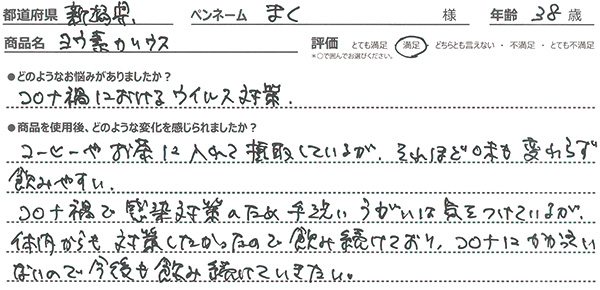 都道府県 新潟県 ペンネーム まく 様 年齢 38 歳
商品名 ヨウ素カリウス 評価 とても満足 ・ 満足 ・ どちらとも言えない ・ 不満足 ・ とても不満足
*○で囲んでお選びください。
●どのようなお悩みがありましたか？
コロナ禍におけるウイルス対策.
●商品を使用後、どのような変化を感じられましたか？
コーヒーや お茶に入れて 摂取しているが、それほど味も変わらず
飲みやすい.
コロナ禍で感染対策のため 手洗い うがいは 気をつけているが、
体内からも 対策したかったので 飲み続けており、コロナにかかって
ないので 今後も飲み続けていきたい。